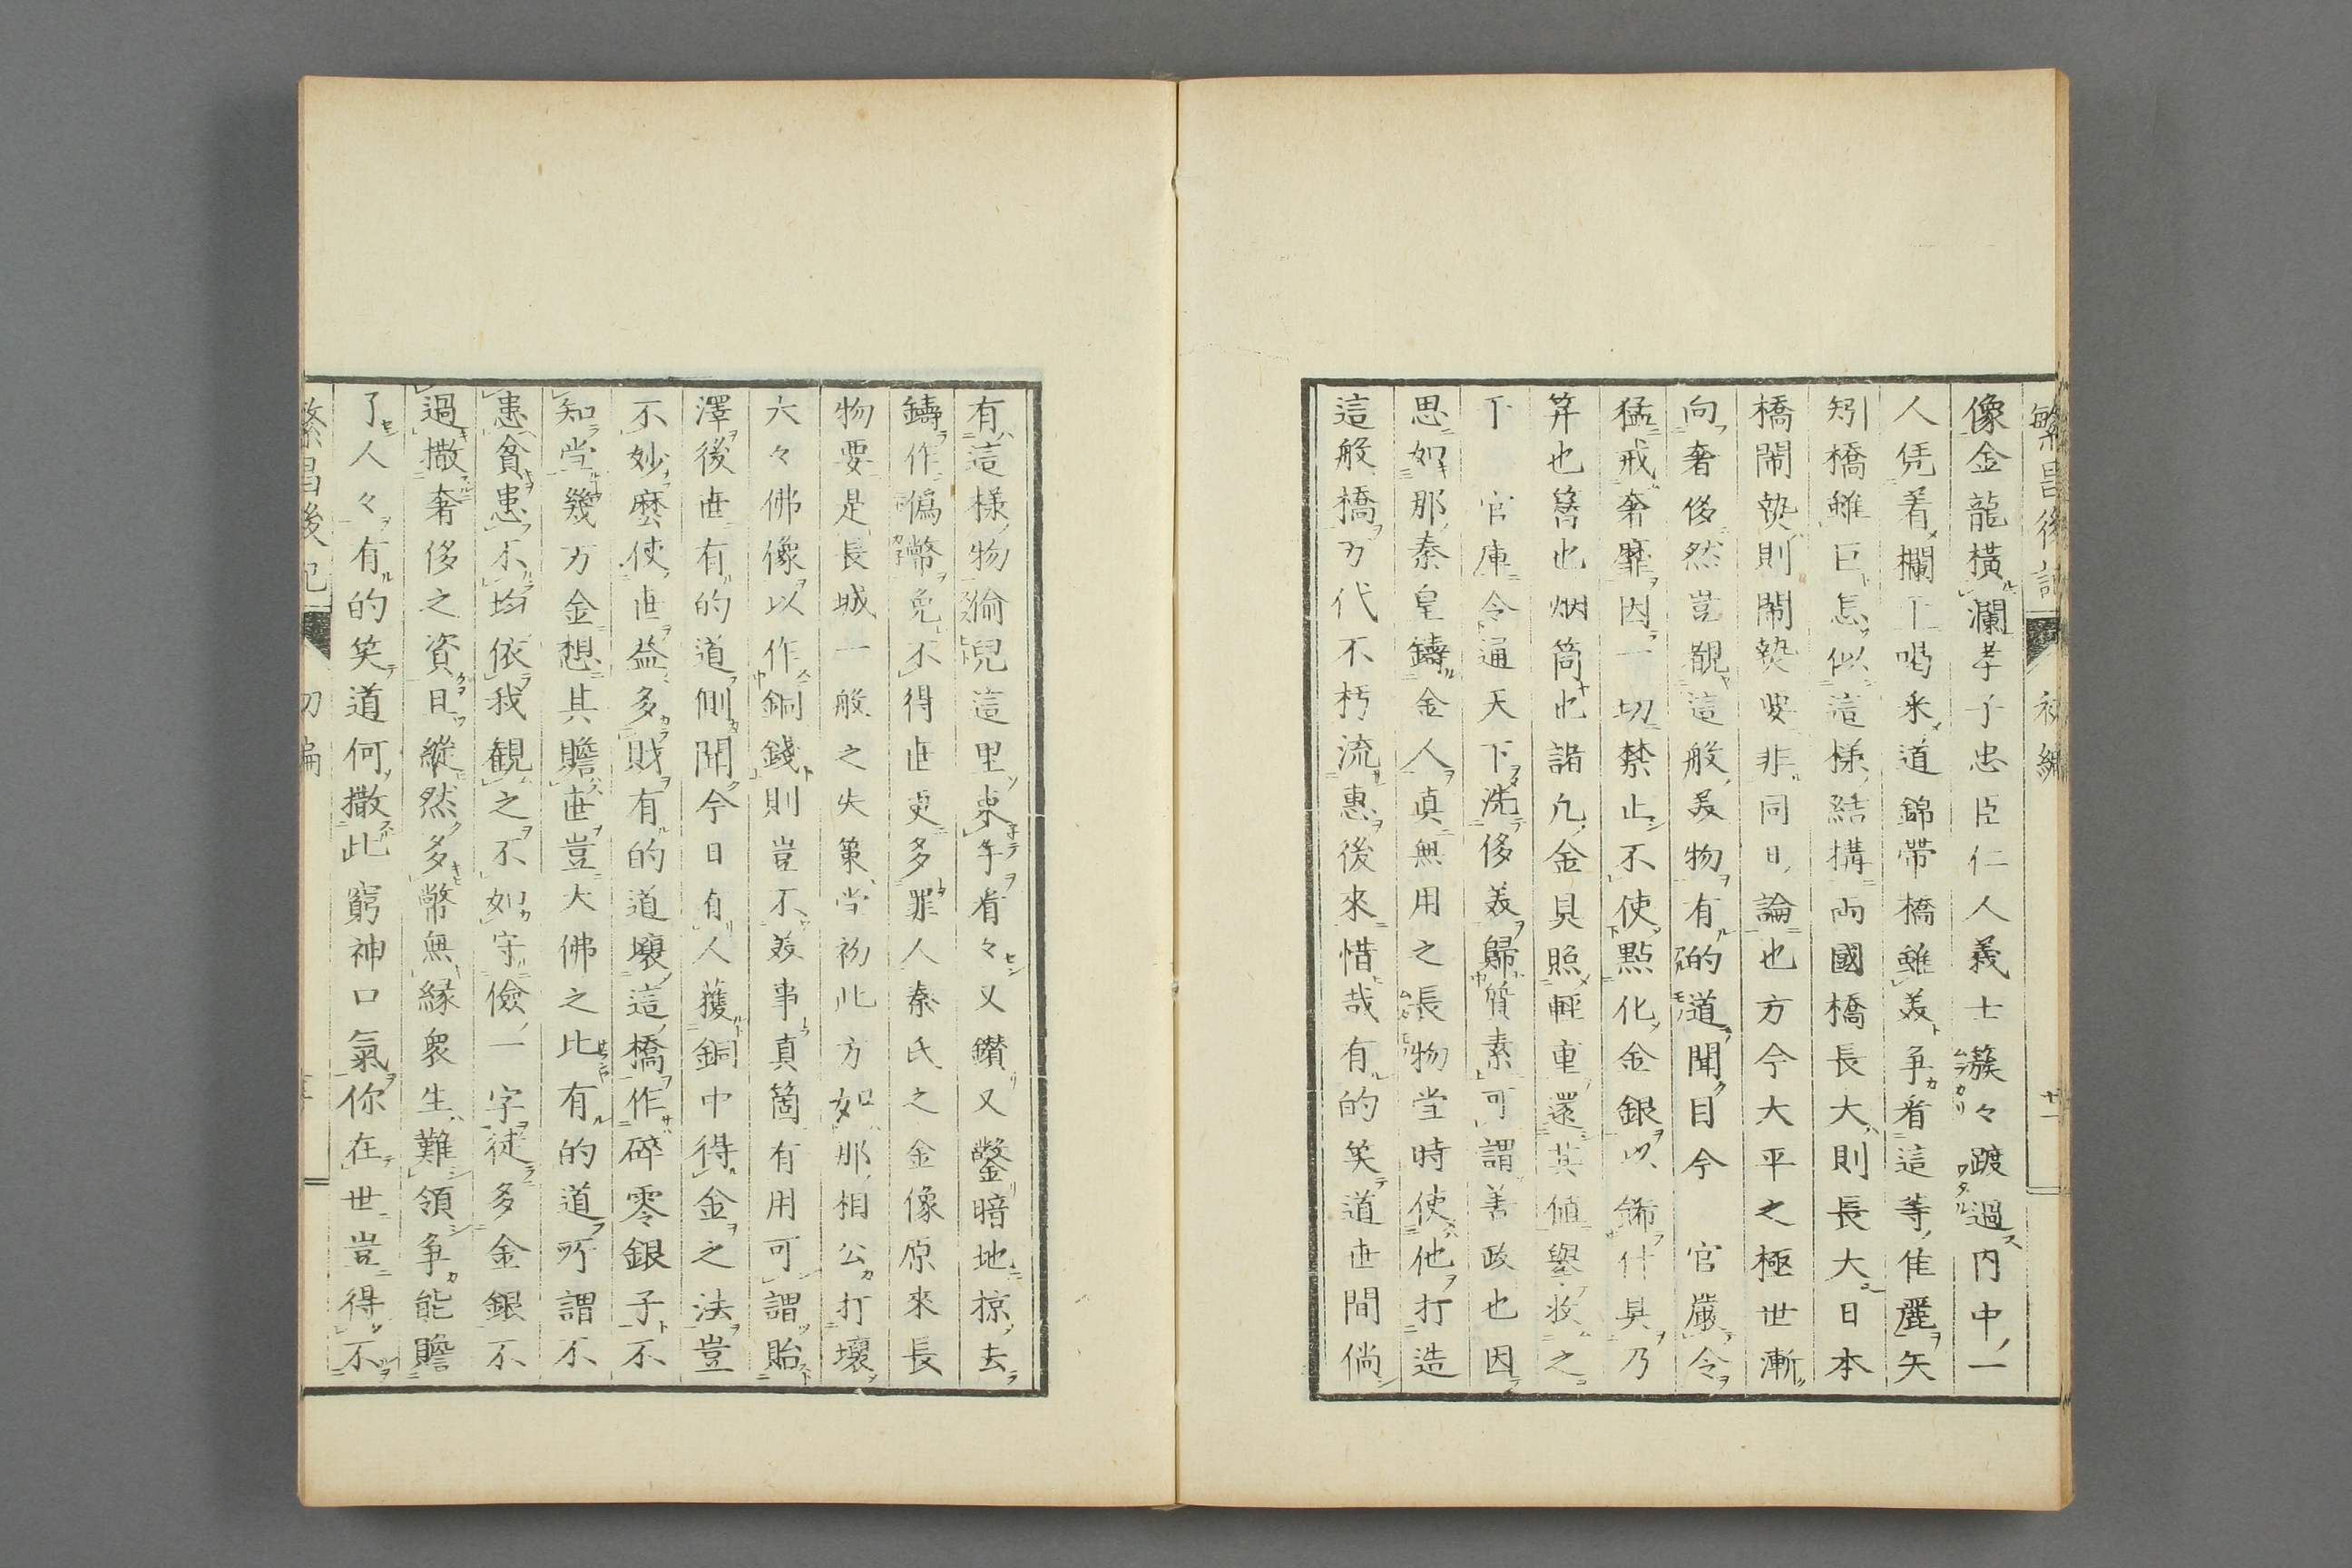 繁昌後記　初編　廿一
像金龍橫瀾孝子忠臣仁人義士簇々踱過内中一
人凭着欄干喝采道錦帶橋雖美争着這等佳麗矢
矧橋雖巨怎似這樣結搆兩國橋長大則長大日本
橋鬧𤍠則鬧𤍠要非同日論也方今大平之極世漸
向奢侈然豈覩這般美物有的道聞目今　官嚴令
猛戒奢靡因一切禁止不使點化金銀以飾什具乃
笄也簪也烟筒也諸凡金具照輕重還其値擧收之
于　官庫令通天下洗侈美歸質素可謂善政也因
思如那秦皇鑄金人真無用之長物當時使他打造
這般橋万代不朽流惠後來惜哉有的笑道世間倘
有這樣物偷兒這里束手看々又鑽又鑿暗地掠去
鑄作偽幣免不得世更多罪人秦氏之金像原來長
物要是長城一般之失策当初此方如那相公打壞
大々佛像以作銅錢則豈不美事真箇有用可謂貽
澤後世有的道側聞今日有人獲銅中得金之法豈
不妙麽使世益多財有的道壞這橋作碎零銀子不
知当幾万金想其贍世豈大佛之比有的道所謂不
患貧患不均依我観之不如守儉一字徒多金銀不
過撒奢侈之資且縱然多幣無縁衆生難領争能贍
了人々有的笑道何撒此窮神口氣你在世豈得不
繁昌後記　初編